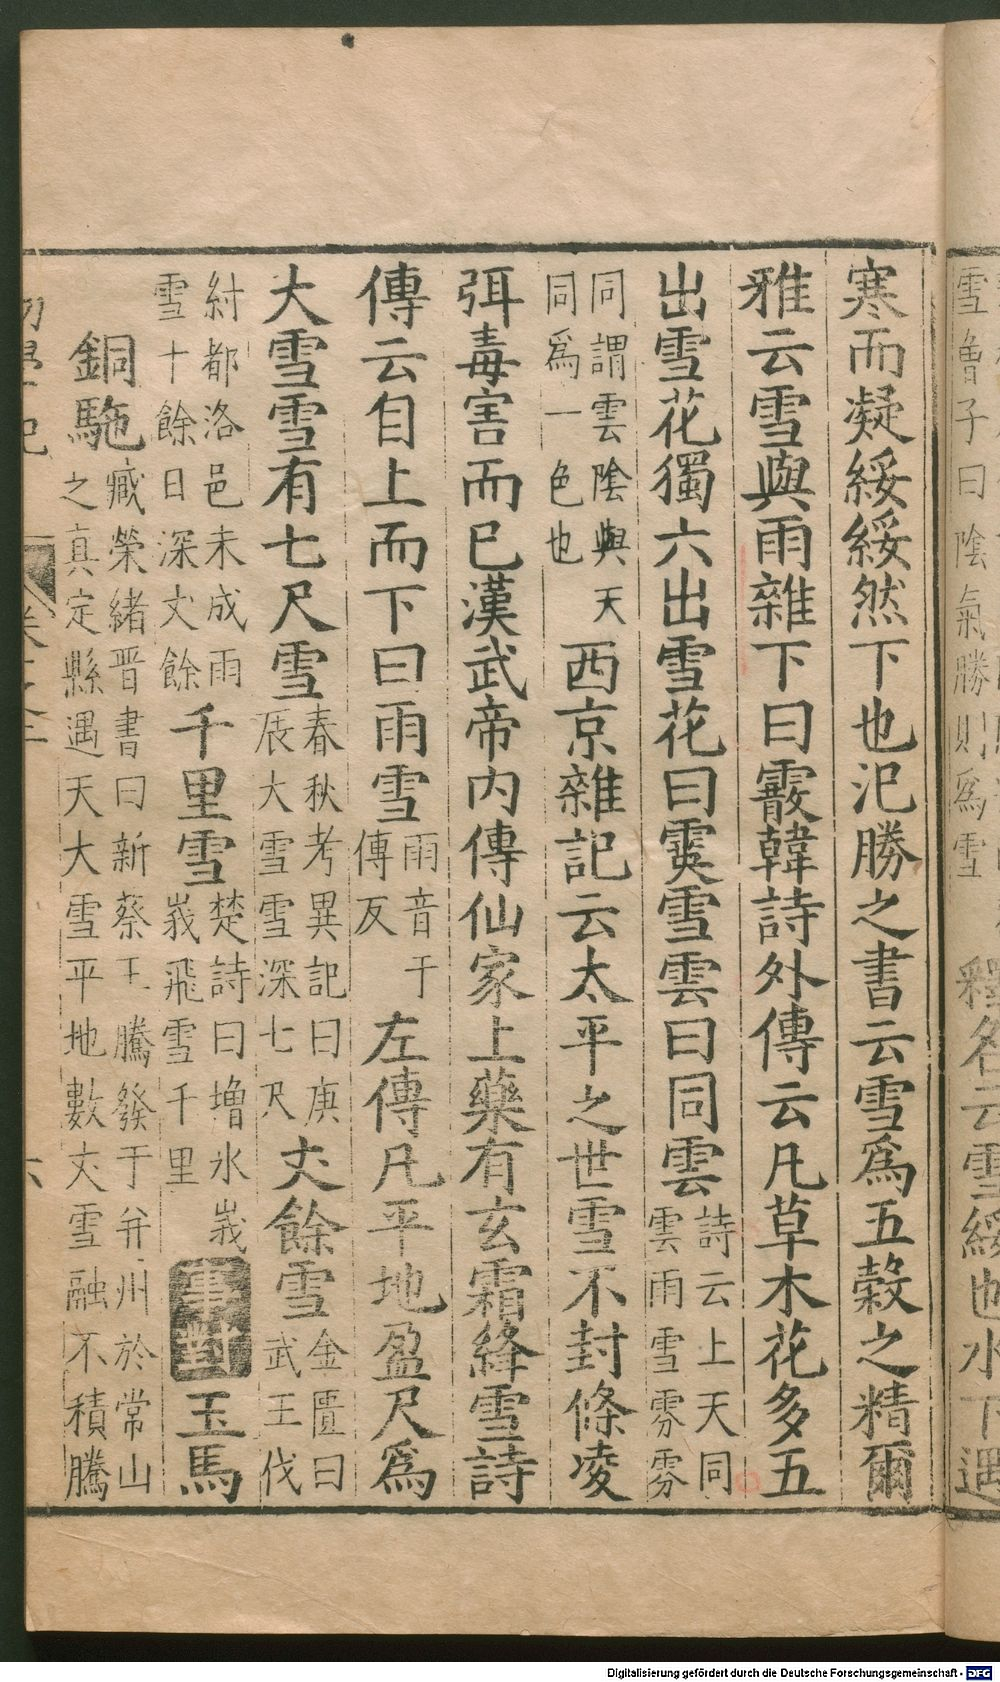 雪魯子曰陰氣勝則爲雪釋名云雪綏也水下遇
寒而凝綏綏然下也氾勝之書云雪爲五穀之精爾
雅云雪與雨雜下曰霰韓詩外傳云凡草木花多五
出雪花獨六出雪花曰霙雪雲曰同雲詩云上天同雲雨雪雰雰
同謂雲陰與天同爲一色也西京雜記云太平之世雪不封條凌
弭毒害而巳漢武帝內傳仙家上藥有玄霜絳雪詩
傳云自上而下曰雨雪雨音于傳反左傳凡平地盈尺爲
大雪雪有七尺雪春秋考異記曰庚辰大雪雪深七尺丈餘雪金匱曰武王伐
紂都洛邑未成雨雪十餘日深丈餘千里雪楚詩曰增氷峩峩飛雪千里事對玉馬
銅駞臧榮緒晉書曰新蔡王騰發于并州於常山之真定縣遇天大雪平地數丈雪融不積騰
初學記
六
Digitalisierung gefördert durch die Deutsche Forschungsgemeinschaft - DFG